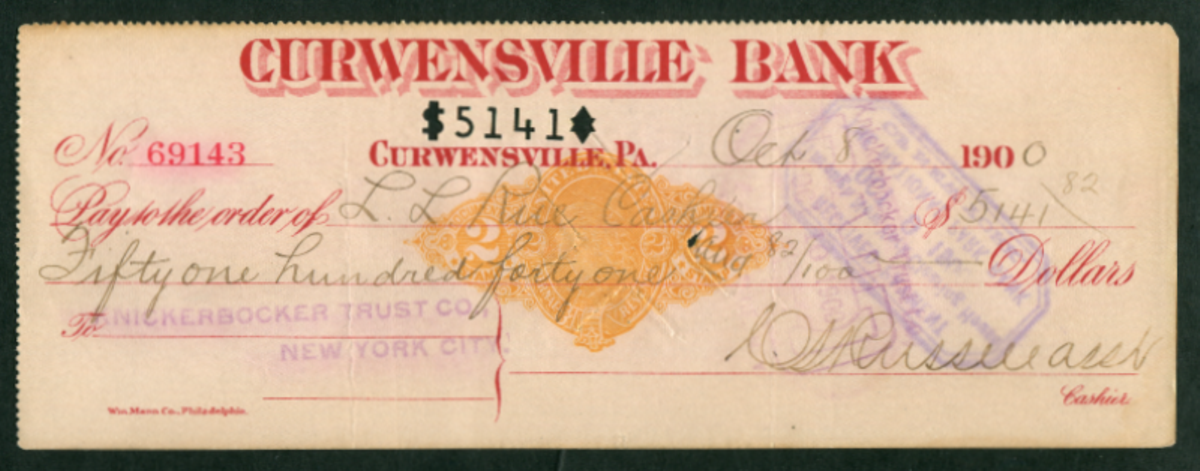 CURWENSVILLE BANK
$5141
No. 69143 CURWENSVILLE, PA. Oct 8 1900
Pay to the order of L. L. Rue Cashier $ 5141 82
Fifty one hundred forty one and 82/100 Dollars
To KNICKERBOCKER TRUST CO.,
NEW YORK CITY.
Russell asst
Cashier.
Wm. Mann Co., Philadelphia.